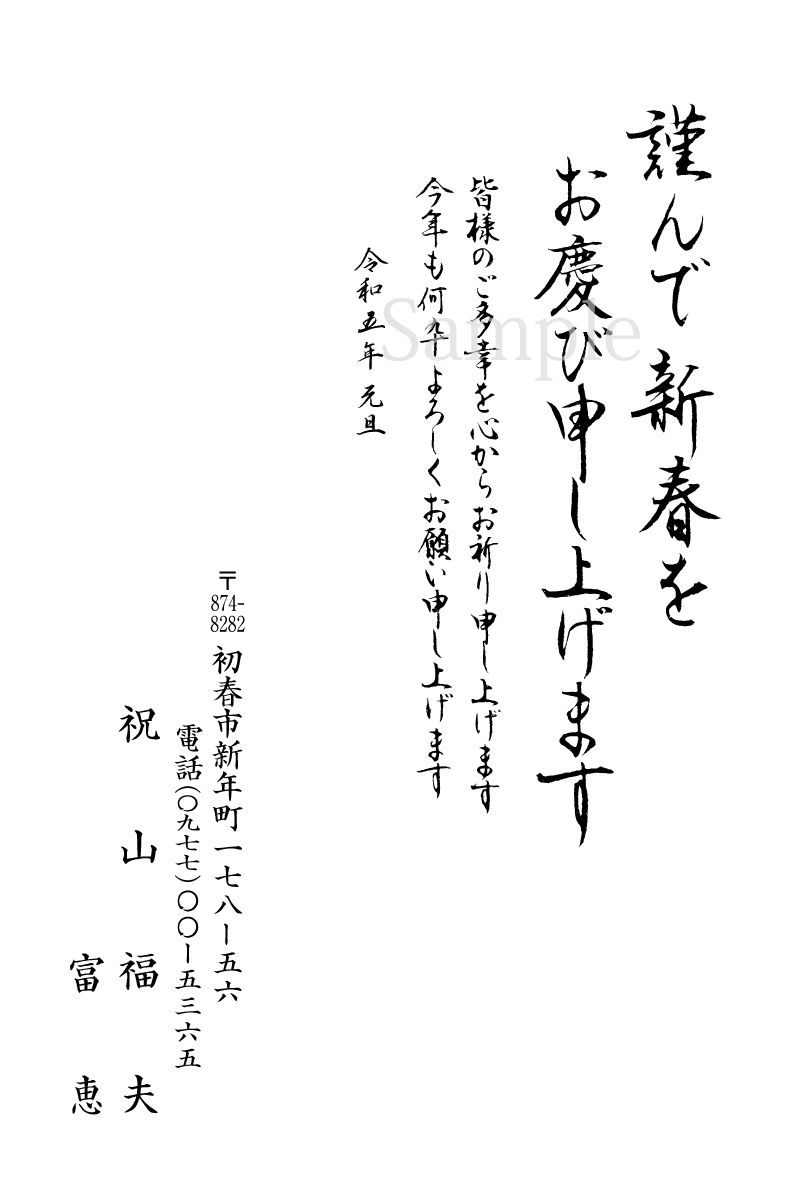 謹んで新春を
お慶び申し上げます
皆様のご多幸を心からお祈り申し上げます
今年も何卒よろしくお願い申し上げます
令和五年 元旦
〒874-8282 初春市新年町一七八ー五六
電話(〇九七七)〇〇ー五三六五
祝山福夫
富恵
Sample